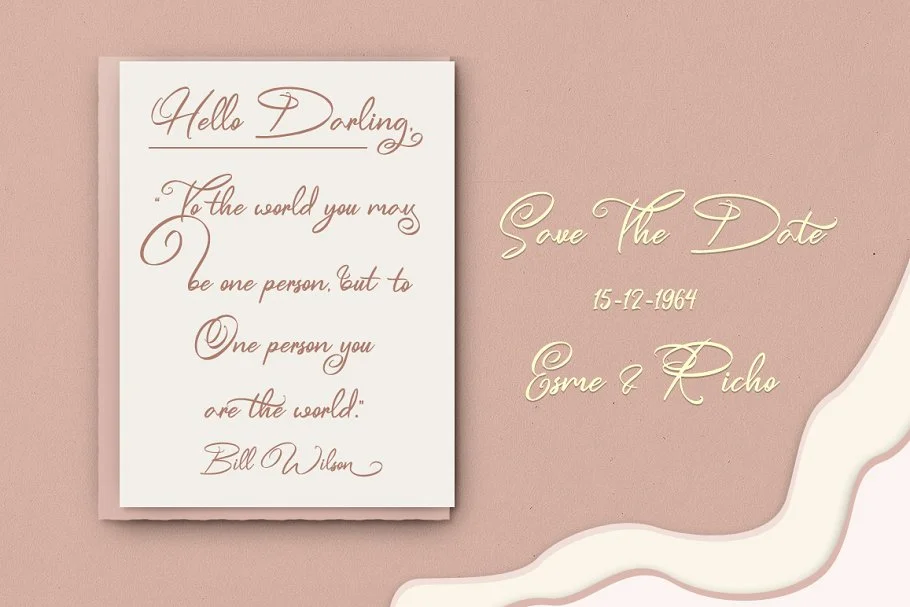 Hello Darling,
"To the world you may
be one person, but to
One person you
are the world."
Bill Wilson
Save The Date
15-12-1964
Esme & Richo